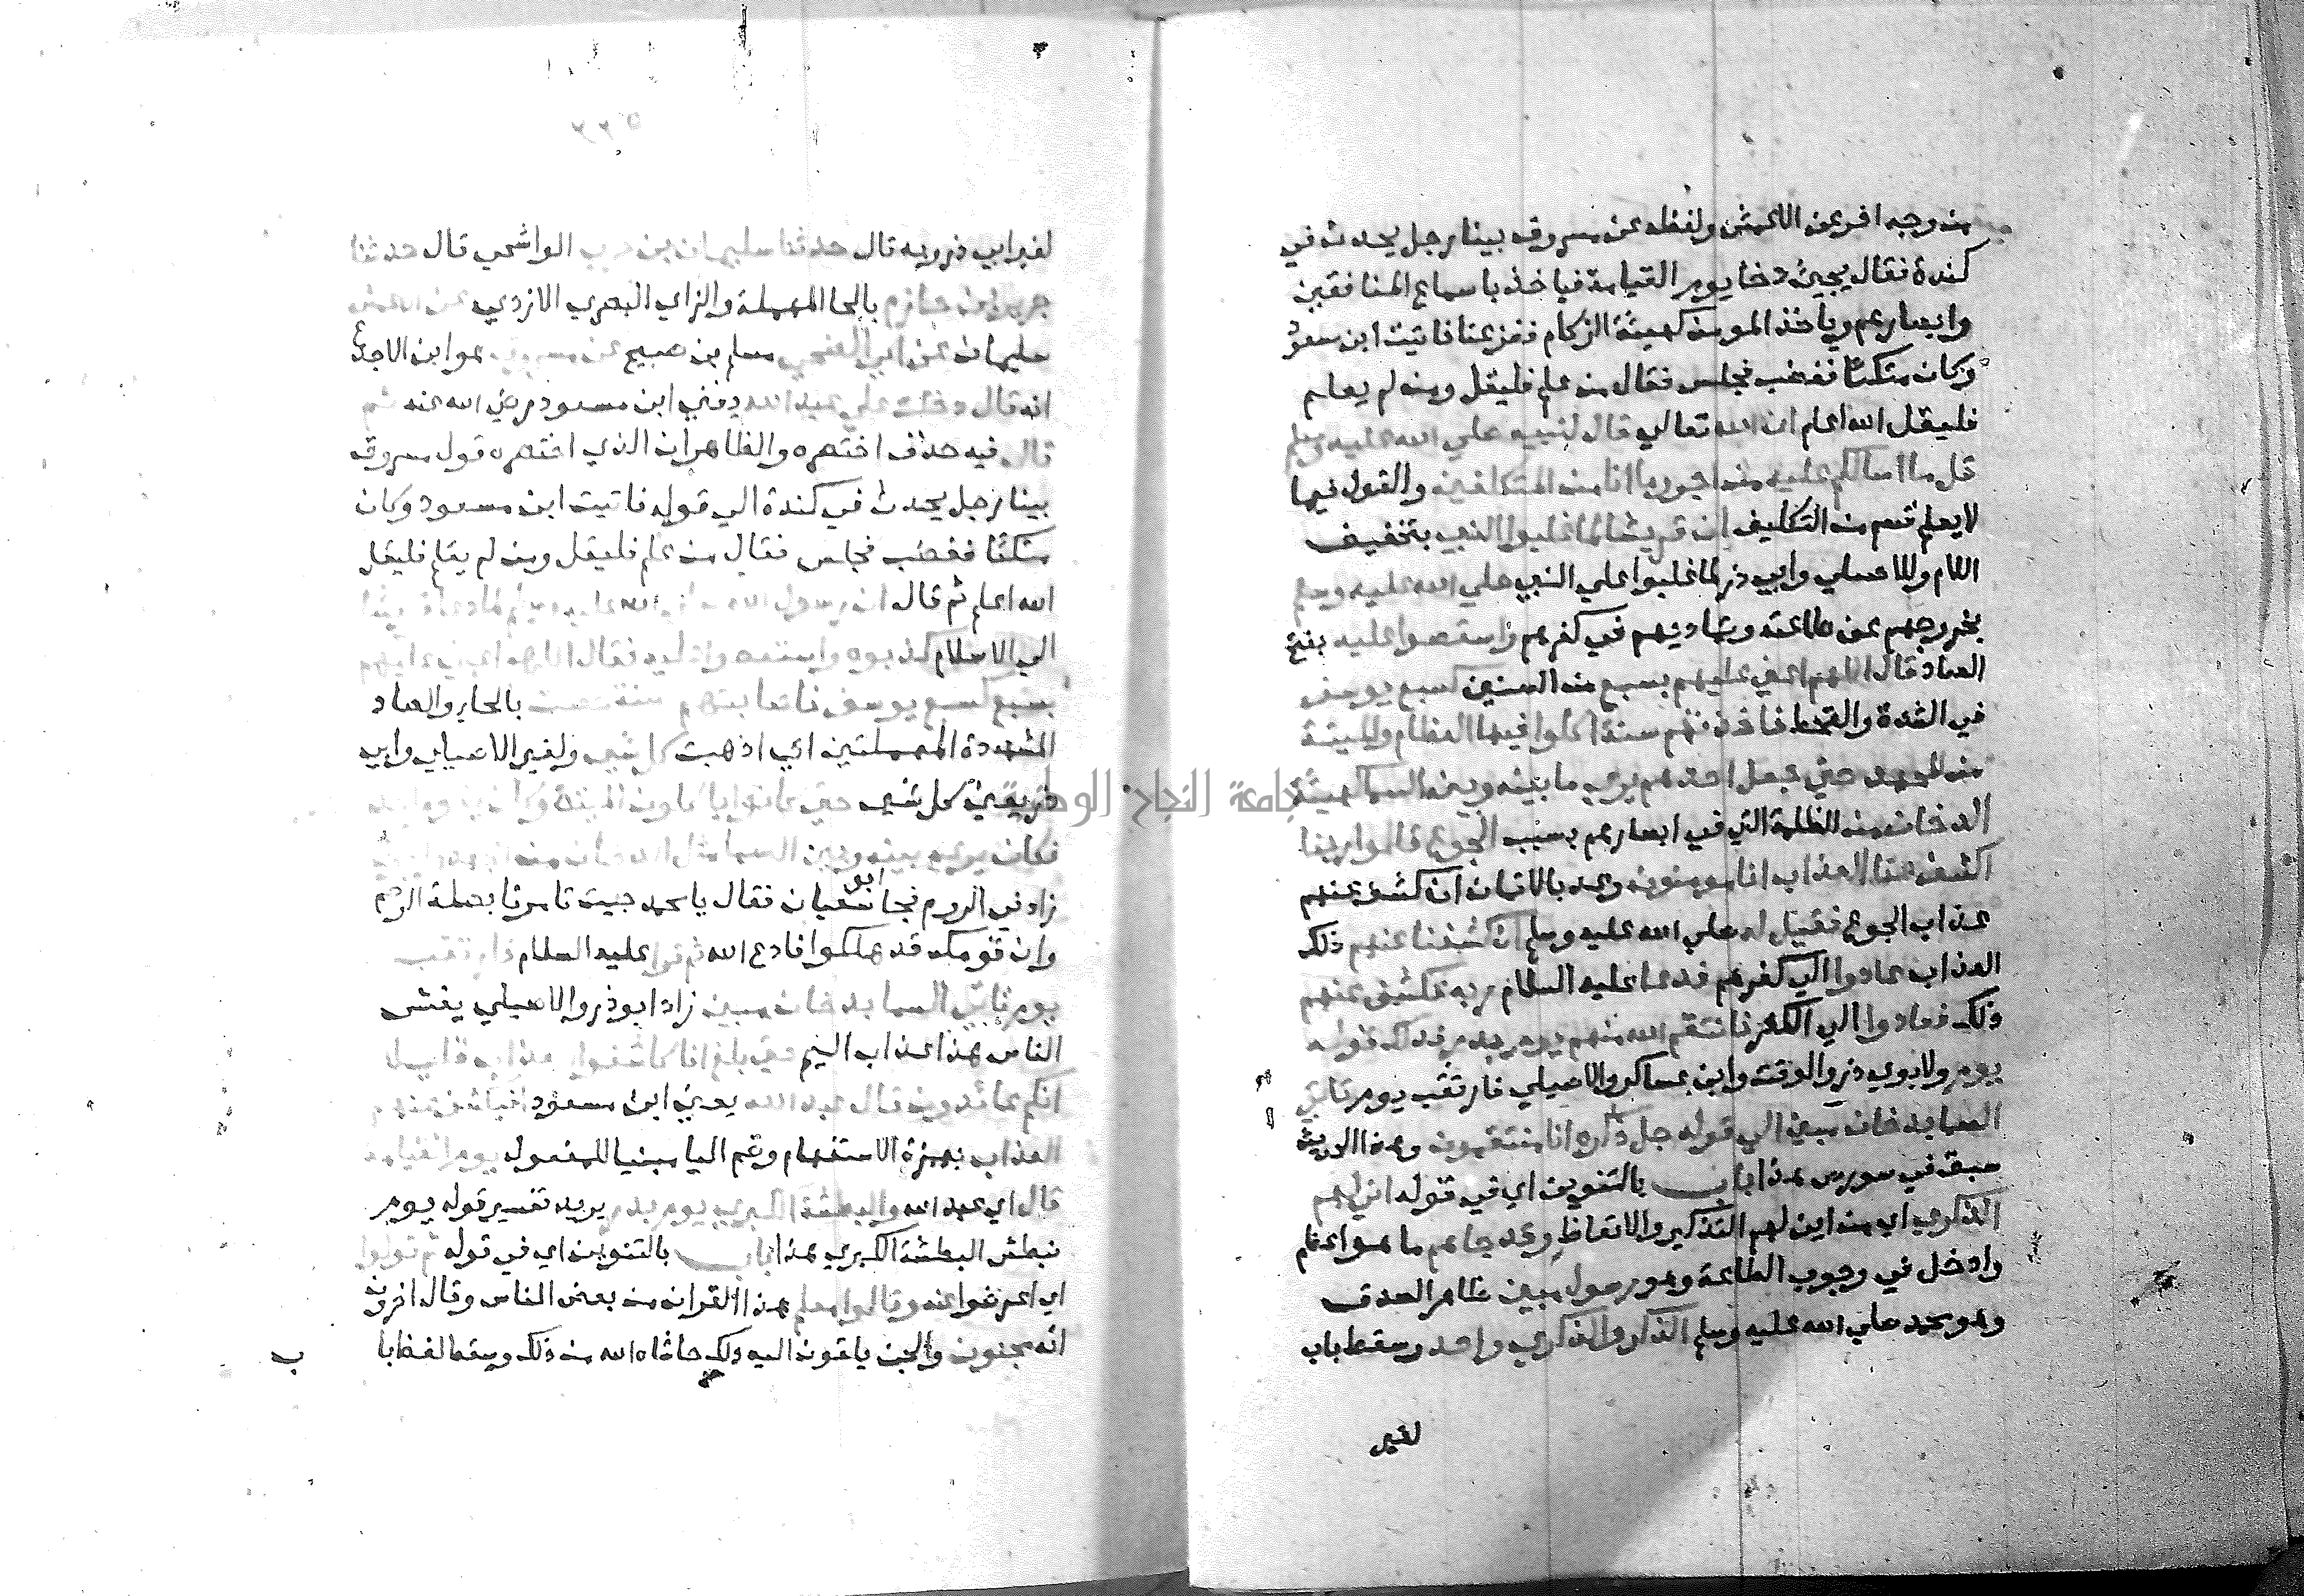 من وجه اخر عن الاعمش ولفظه عن مسروق بينا رجل يحدث في
كندة فقال يجيئ دخان يوم القيامة فياخذ باسماع المنافقين
وابصارهم وياخذ المومن كهيئة الزكام ففزعنا فاتيت ابن مسعود
وكان متكئا فغضب فجلس فقال من علم فليقل ومن لم يعلم
فليقل الله اعلم ان الله تعالي قال لنبيه صلي الله عليه وسلم
قل ما اسالكم عليه من اجر وما انا من المتكلفين والقول فيما
لا يعلم قسم من التكليف ان قريشا لما غلبوا النبي بتخفيف
اللام وللاصيلي وابي ذر لما غلبوا علي النبي صلي الله عليه وسلم
بخروجهم عن طاعته وتماديهم في كفرهم واستعصوا عليه بفتح
الصاد قال اللهم اعني عليهم بسبع من السنين كسبع يوسف
في الشدة والقحط فاخذتهم سنة اكلوا فيها العظام والميتة
من الجهد حتي جعل احدهم يري ما بينه وبين السما كهيئة
الدخان من الظلمة التي في ابصارهم بسبب الجوع قالوا ربنا
اكشف عنا العذاب انا مومنون وعد بالايمان ان كشف عنهم
عذاب الجوع فقيل له صلي الله عليه وسلم ان كشفنا عنهم ذلك
العذاب عادوا الي كفرهم فدعا عليه السلام ربه فكشف عنهم
ذلك فعادوا الي الكفر فانتقم الله منهم يوم بدر فذلك قوله
يوم ولابوي ذر والوقت وابن عساكر والاصيلي فارتقب يوم تاتي
السما بدخان مبين الي قوله جل ذكره انا منتقمون وهذا الحديث
سبق في سورة ص هذا باب بالتنوين اي في قوله اني لهم
الذكري اي من اين لهم التذكير والاتعاظ وقد جاءهم ما هو اعظم
وادخل في وجوب الطاعة وهو رسول مبين ظاهر الصدق
وهو محمد صلي الله عليه وسلم الذكر والذكري واحد وسقط باب
لغير
لغير ابي ذر وبه قال حدثنا سليمان بن حرب الواشحي قال حدثنا
جرير بن حازم بالحا المهملة والزاي البصري الازدي عن الاعمش
سليمان عن ابي الضحي مسلم بن صبيح عن مسروق هو ابن الاجدع
انه قال دخلت علي عبد الله يعني ابن مسعود رضي الله عنه ثم
قال فيه حذف اختصره والظاهر ان الذي اختصره قول مسروق
بينا رجل يحدث في كندة الي قوله فاتيت ابن مسعود وكان
متكئا فغضب فجلس فقال من علم فليقل ومن لم يعلم فليقل
الله اعلم ثم قال ان رسول الله صلي الله عليه وسلم لما دعا قريشا
الي الاسلام كذبوه واستعصوا عليه فقال اللهم اعني عليهم
بسبع كسبع يوسف فاصابتهم سنة حصت بالحا والصاد
المشددة المهملتين اي اذهبت كل شي ولغير الاصيلي وابي
ذر يعني كل شيء حتي كانوا ياكلون الميتة وكان يقوم احدهم
فكان يري بينه وبين السما مثل الدخان من الجهد والجوع
زاد في الروم فجا ابو سفيان فقال يا محمد جيت تامرنا بصلة الرحم
وان قومك قد هلكوا فادع الله ثم قرا عليه السلام فارتقب
يوم تاتي السما بدخان مبين زاد ابوذر والاصيلي يغشى
الناس هذا عذاب اليم حتي بلغ انا كاشفوا العذاب قليلا
انكم عائدون قال عبد الله يعني ابن مسعود افيكشف عنهم
العذاب بهمزة الاستفهام وضم اليا مبنيا للمفعول يوم القيامة
قال اي عبد الله والبطشة الكبري يوم بدر يريد تفسير قوله يوم
نبطش البطشة الكبري هذا باب بالتنوين اي في قوله ثم تولوا
اي اعرضوا عنه وقالوا معلم هذا القران من بعض الناس وقال اخرون
انه مجنون والجن ياتون اليه ذلك حاشاه الله من ذلك وسقط لفظ با
ب
جامعة النجاح الوطنية